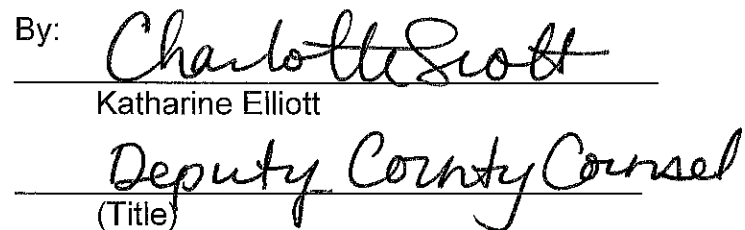 By: Charlotte Scott
Katharine Elliott
Deputy County Counsel
(Title)